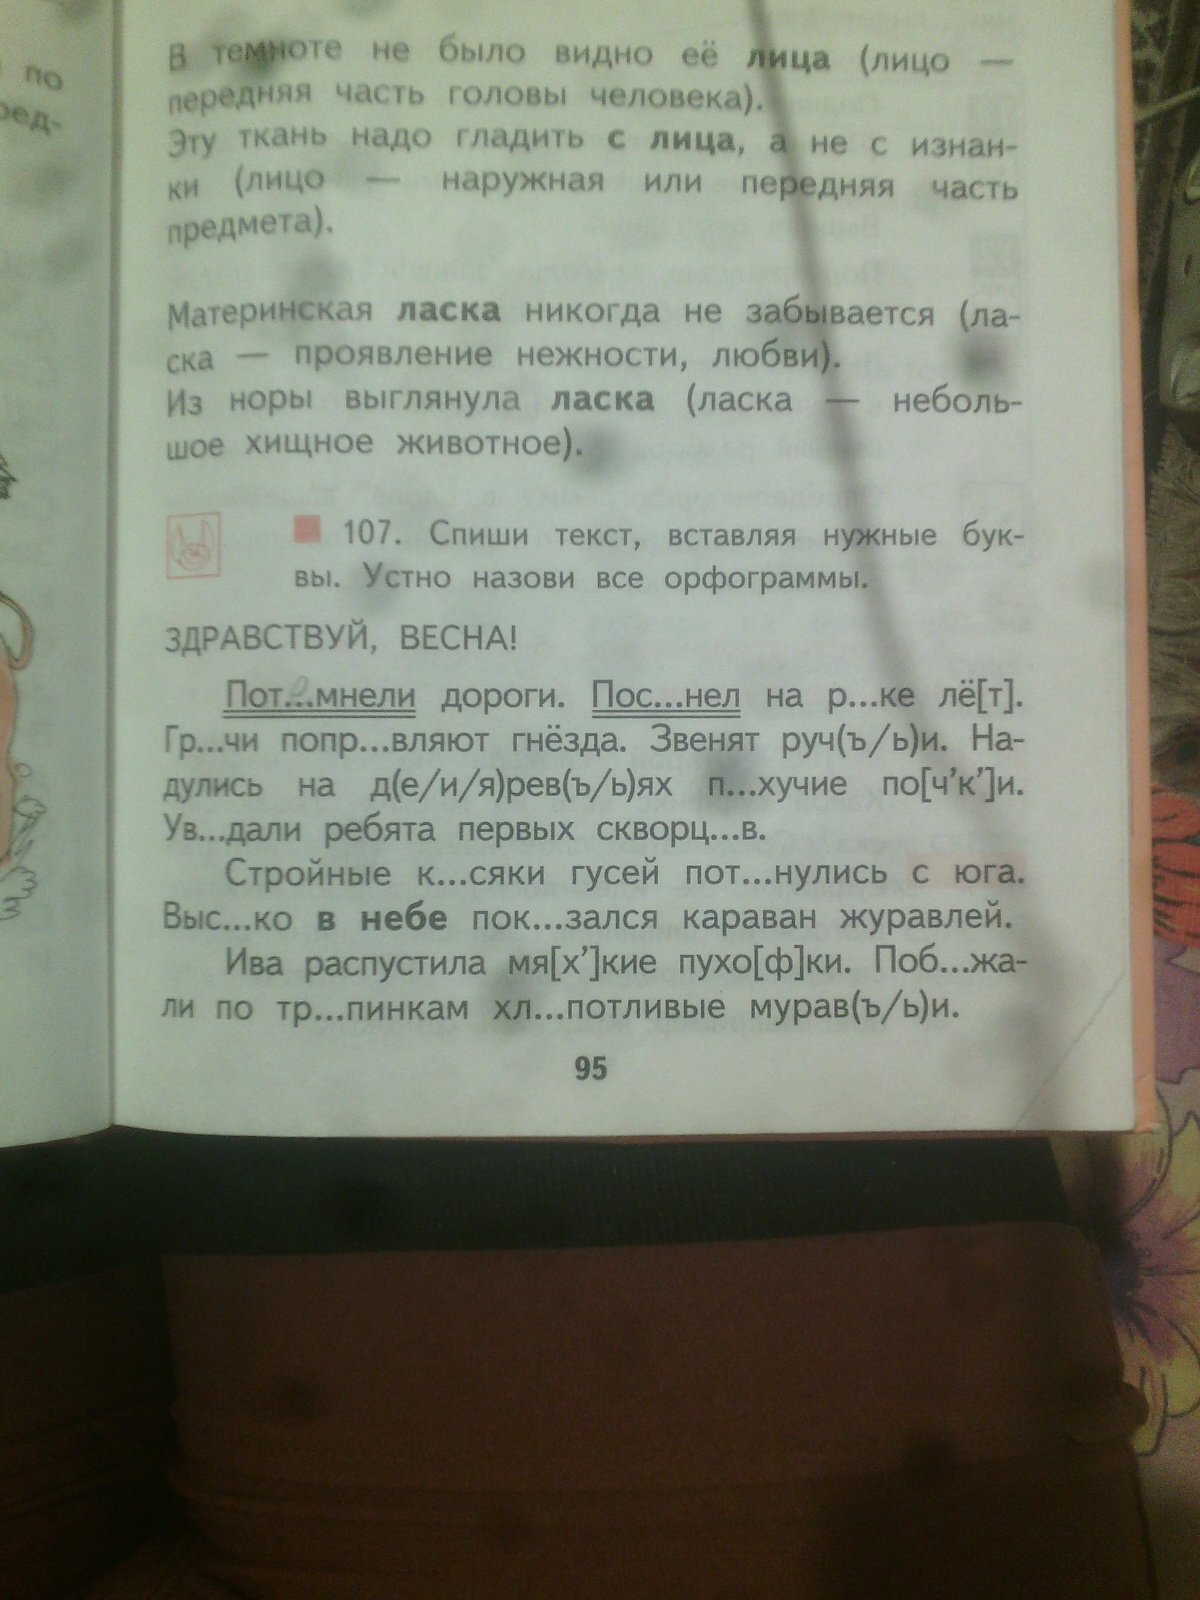 по
ред-
В темноте не было видно её лица (лицо —
передняя часть головы человека).
Эту ткань надо гладить с лица, а не с изнан-
ки (лицо — наружная или передняя часть
предмета).
Материнская ласка никогда не забывается (ла-
ска — проявление нежности, любви).
Из норы выглянула ласка (ласка — неболь-
шое хищное животное).
107. Спиши текст, вставляя нужные бук-
вы. Устно назови все орфограммы.
ЗДРАВСТВУЙ, ВЕСНА!
Пот...мнели дороги. Пос...нел на р...ке лё[т].
Гр...чи попр...вляют гнёзда. Звенят руч(ъ/ь)и. На-
дулись на д(е/и/я)рев(ъ/ь)ях п...хучие по[ч’к’]и.
Ув...дали ребята первых скворц...в.
Стройные к...сяки гусей пот...нулись с юга.
Выс...ко в небе пок...зался караван журавлей.
Ива распустила мя[х’]кие пухо[ф]ки. Поб...жа-
ли по тр...пинкам хл...потливые мурав(ъ/ь)и.
95